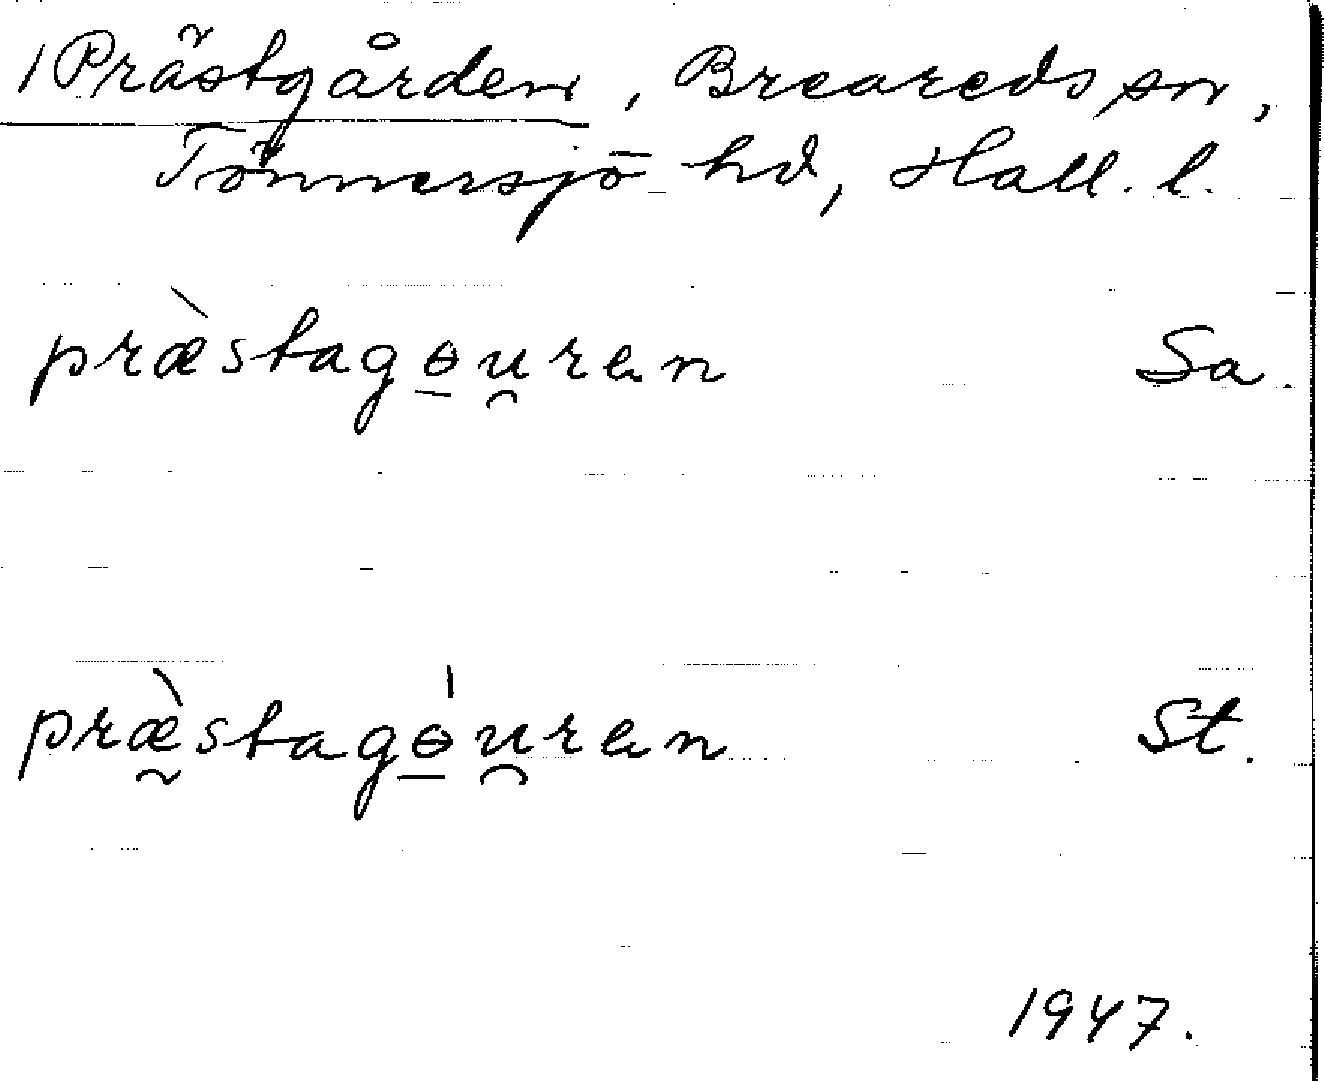 /Prästgården, Breareds sn,
Tönnersjö hd, Hall. l.
præ̀stagɵ̱u̯ren Sa.
præ̰̀stagɵ̱́u̯ren St.
1947.